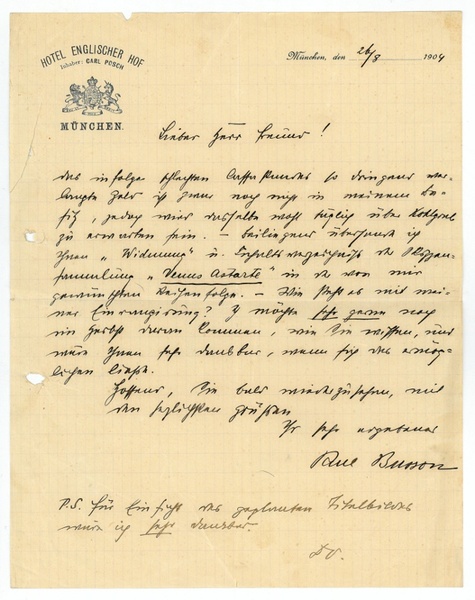 HOTEL ENGLISCHER HOF
Inhaber: CARL POSCH
MÜNCHEN.
München, den 26/8 1904
Lieber Herr Freund!
das infolge schlechten Cassastandes so dringend ver-
langte Geld ist zwar noch nicht in meinem Be-
sitz, jedoch wird dasselbe wohl täglich über
zu erwarten sein. – Beiliegend übersende ich
Ihnen „Widmung" u. Inhaltsverzeichnis der Skizzen-
sammlung „Venus Astarte" in der von mir
gewünschten Reihenfolge. – Wie steht es mit mei-
ner Einradierung? Ich möchte sehr gerne noch
im Herbst daran kommen, wie Sie wissen, und
wäre Ihnen sehr dankbar, wenn sich das ermög-
lichen liesse.
Hoffend, Sie bald wiederzusehen, mit
den herzlichsten Grüßen
Ihr sehr ergebener
Paul Busson
P.S. Für Einsicht des geplanten Titelbildes
wäre ich sehr dankbar.
D.O.